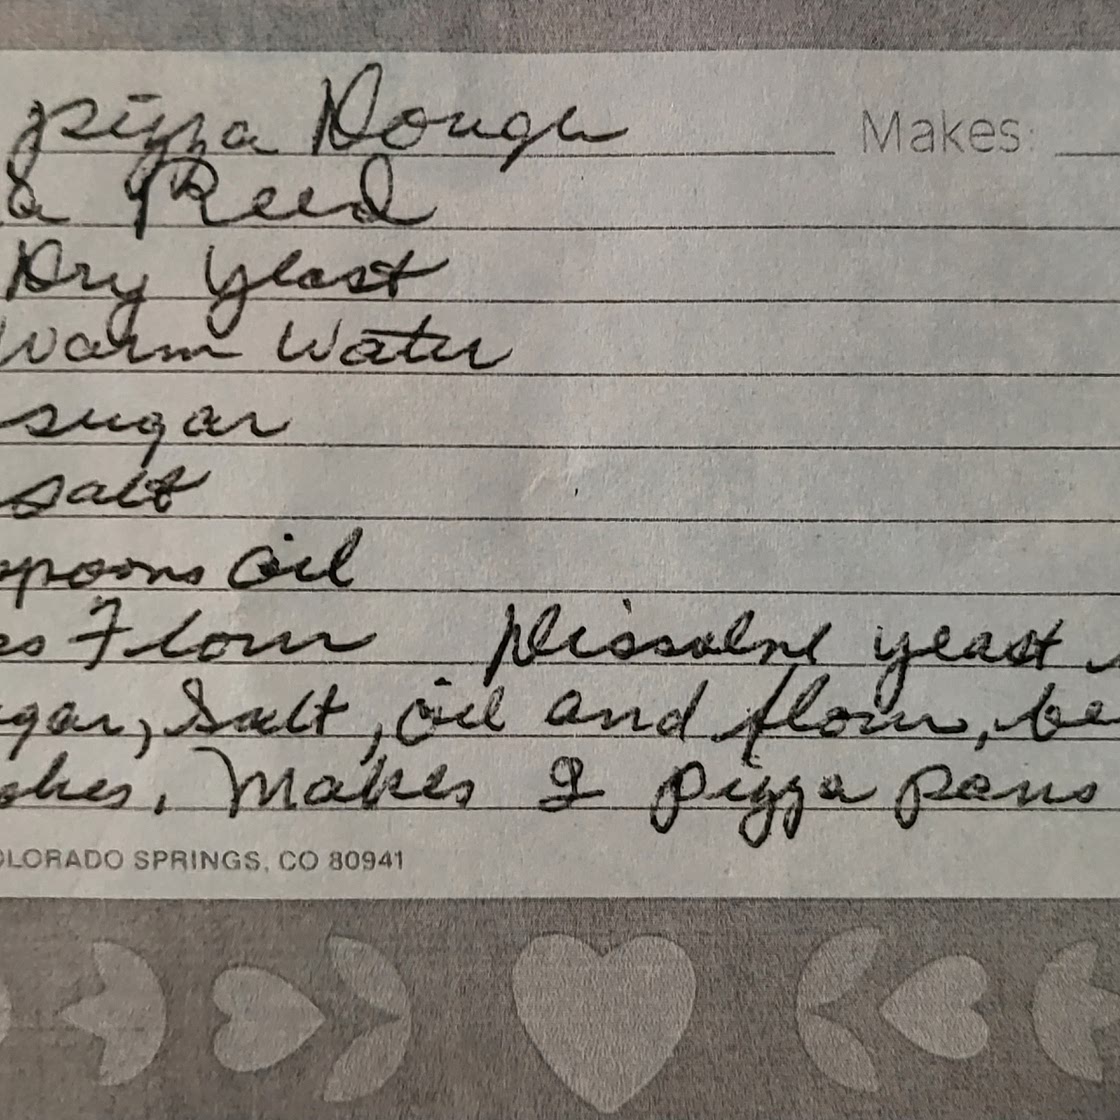 pizza Dough Makes:
& Reed
Dry yeast
Warm Water
sugar
salt
spoons oil
es Flour Dissolve yeast
gar, Salt, oil and flour, be
okes. Makes 2 pizza pans
OLORADO SPRINGS, CO 80941